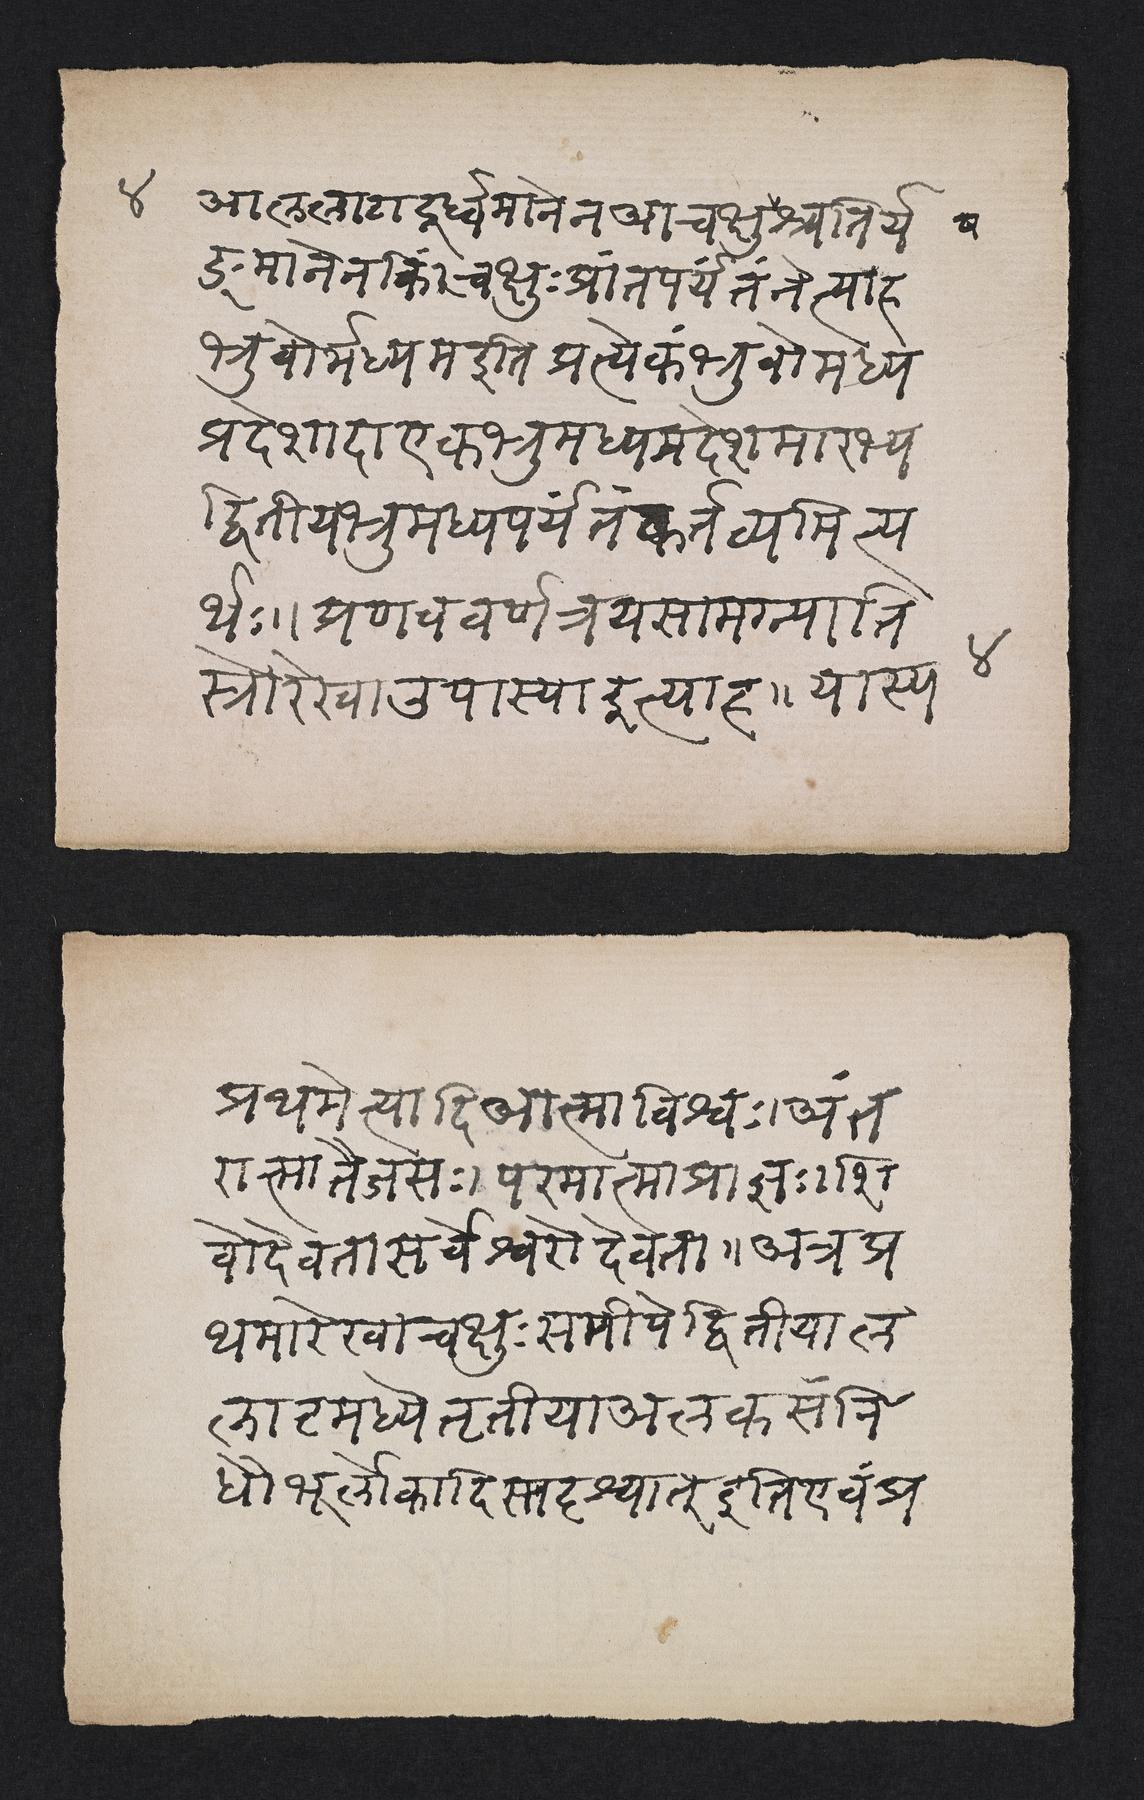 ४ आललाटादूर्ध्वमानेनआचक्षुश्च्यतिर्य
ङ्मानेनकिंचक्षुःप्रांतपर्यंतंनेत्याह
भ्रुवोर्मध्यमइतिप्रत्येकंभ्रुवोमध्य
प्रदेशादाएकभ्रुमध्यमदेशमारभ्य
द्वितीयभ्रुमध्यपर्यंतंकर्तव्यमित्य
र्थः॥प्रणववर्णत्रयसामग्न्याति
स्त्रोरेखाउपास्याइत्याह॥यास्य ४
प्रथमेत्यादिआत्माविश्वः।अंत
रात्मातैजसः।परमात्माप्राज्ञः।शि
वोदेवतासर्वेश्वरोदेवता॥अत्रप्र
थमारेखाचक्षुःसमीपेद्वितीयाल
लाटमध्येतृतीयाअलकसंनि
धौभूर्लोकादिसादृश्यात्इतिएवंप्र